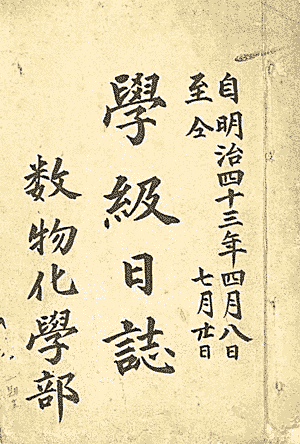 自明治四十三年四月八日
至仝七月廿日
學級日誌
数物化學部